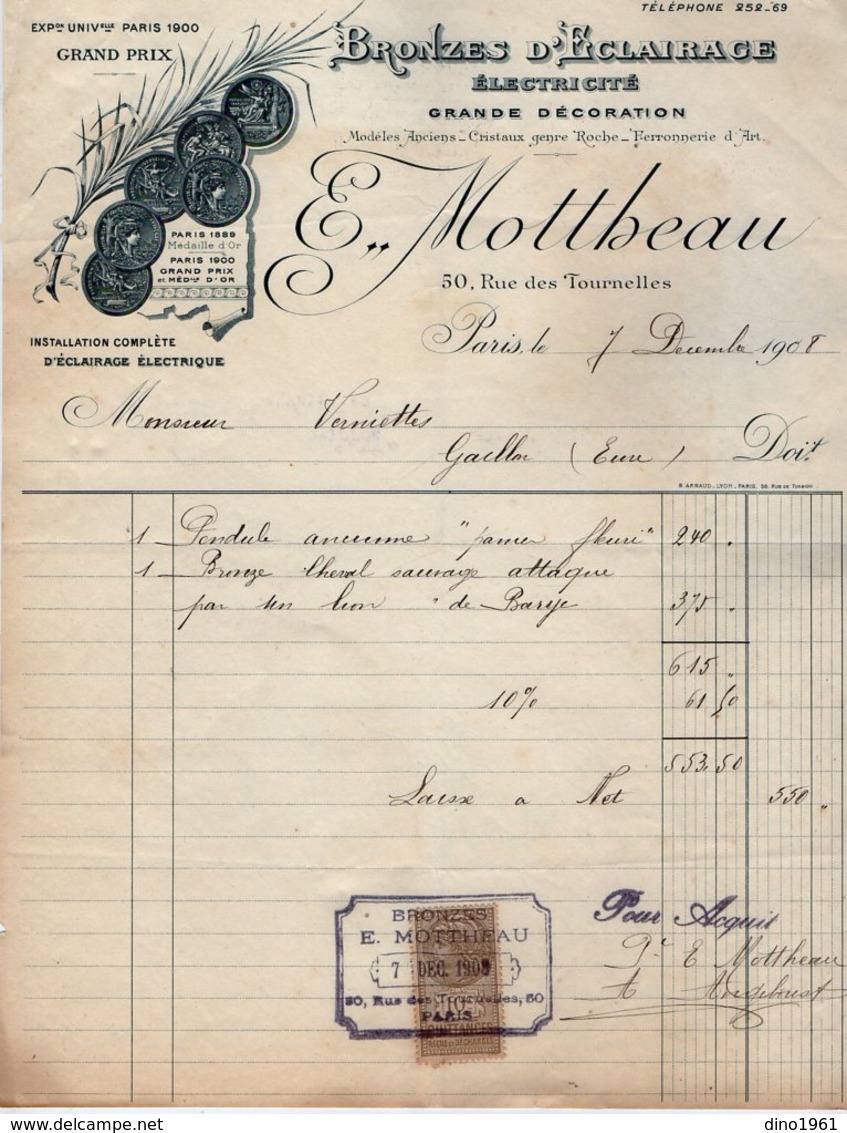 TÉLÉPHONE 252-69
EXPon UNIVelle PARIS 1900
GRAND PRIX
BRONZES D'ECLAIRAGE
ÉLECTRICITÉ
GRANDE DÉCORATION
Modèles Anciens_Cristaux genre Roche_Ferronnerie d'Art.
E. Mottheau
50, Rue des Tournelles
PARIS 1889
Médaille d'Or
PARIS 1900
GRAND PRIX
et MÉDlle D'OR
INSTALLATION COMPLÈTE
D'ÉCLAIRAGE ÉLECTRIQUE
Paris, le 7 Decembre 1908
Monsieur Verniettes
Gaillon (Eure) Doit
B. ARNAUD, LYON_PARIS,
1 Pendule ancienne "panier fleuri" 240 "
1 Bronze Cheval sauvage attaque
par un lion " de Barye 375 "
615 "
10% 61 50
553.50
Laisse a Net 550 "
BRONZES
E. MOTTHEAU
7 DEC. 1908
50, Rue des Tournelles, 50
PARIS
10c
QUITTANCES
REÇUS ET DÉCHARGES
Pour Acquit
Pr E Mottheau
dino1961